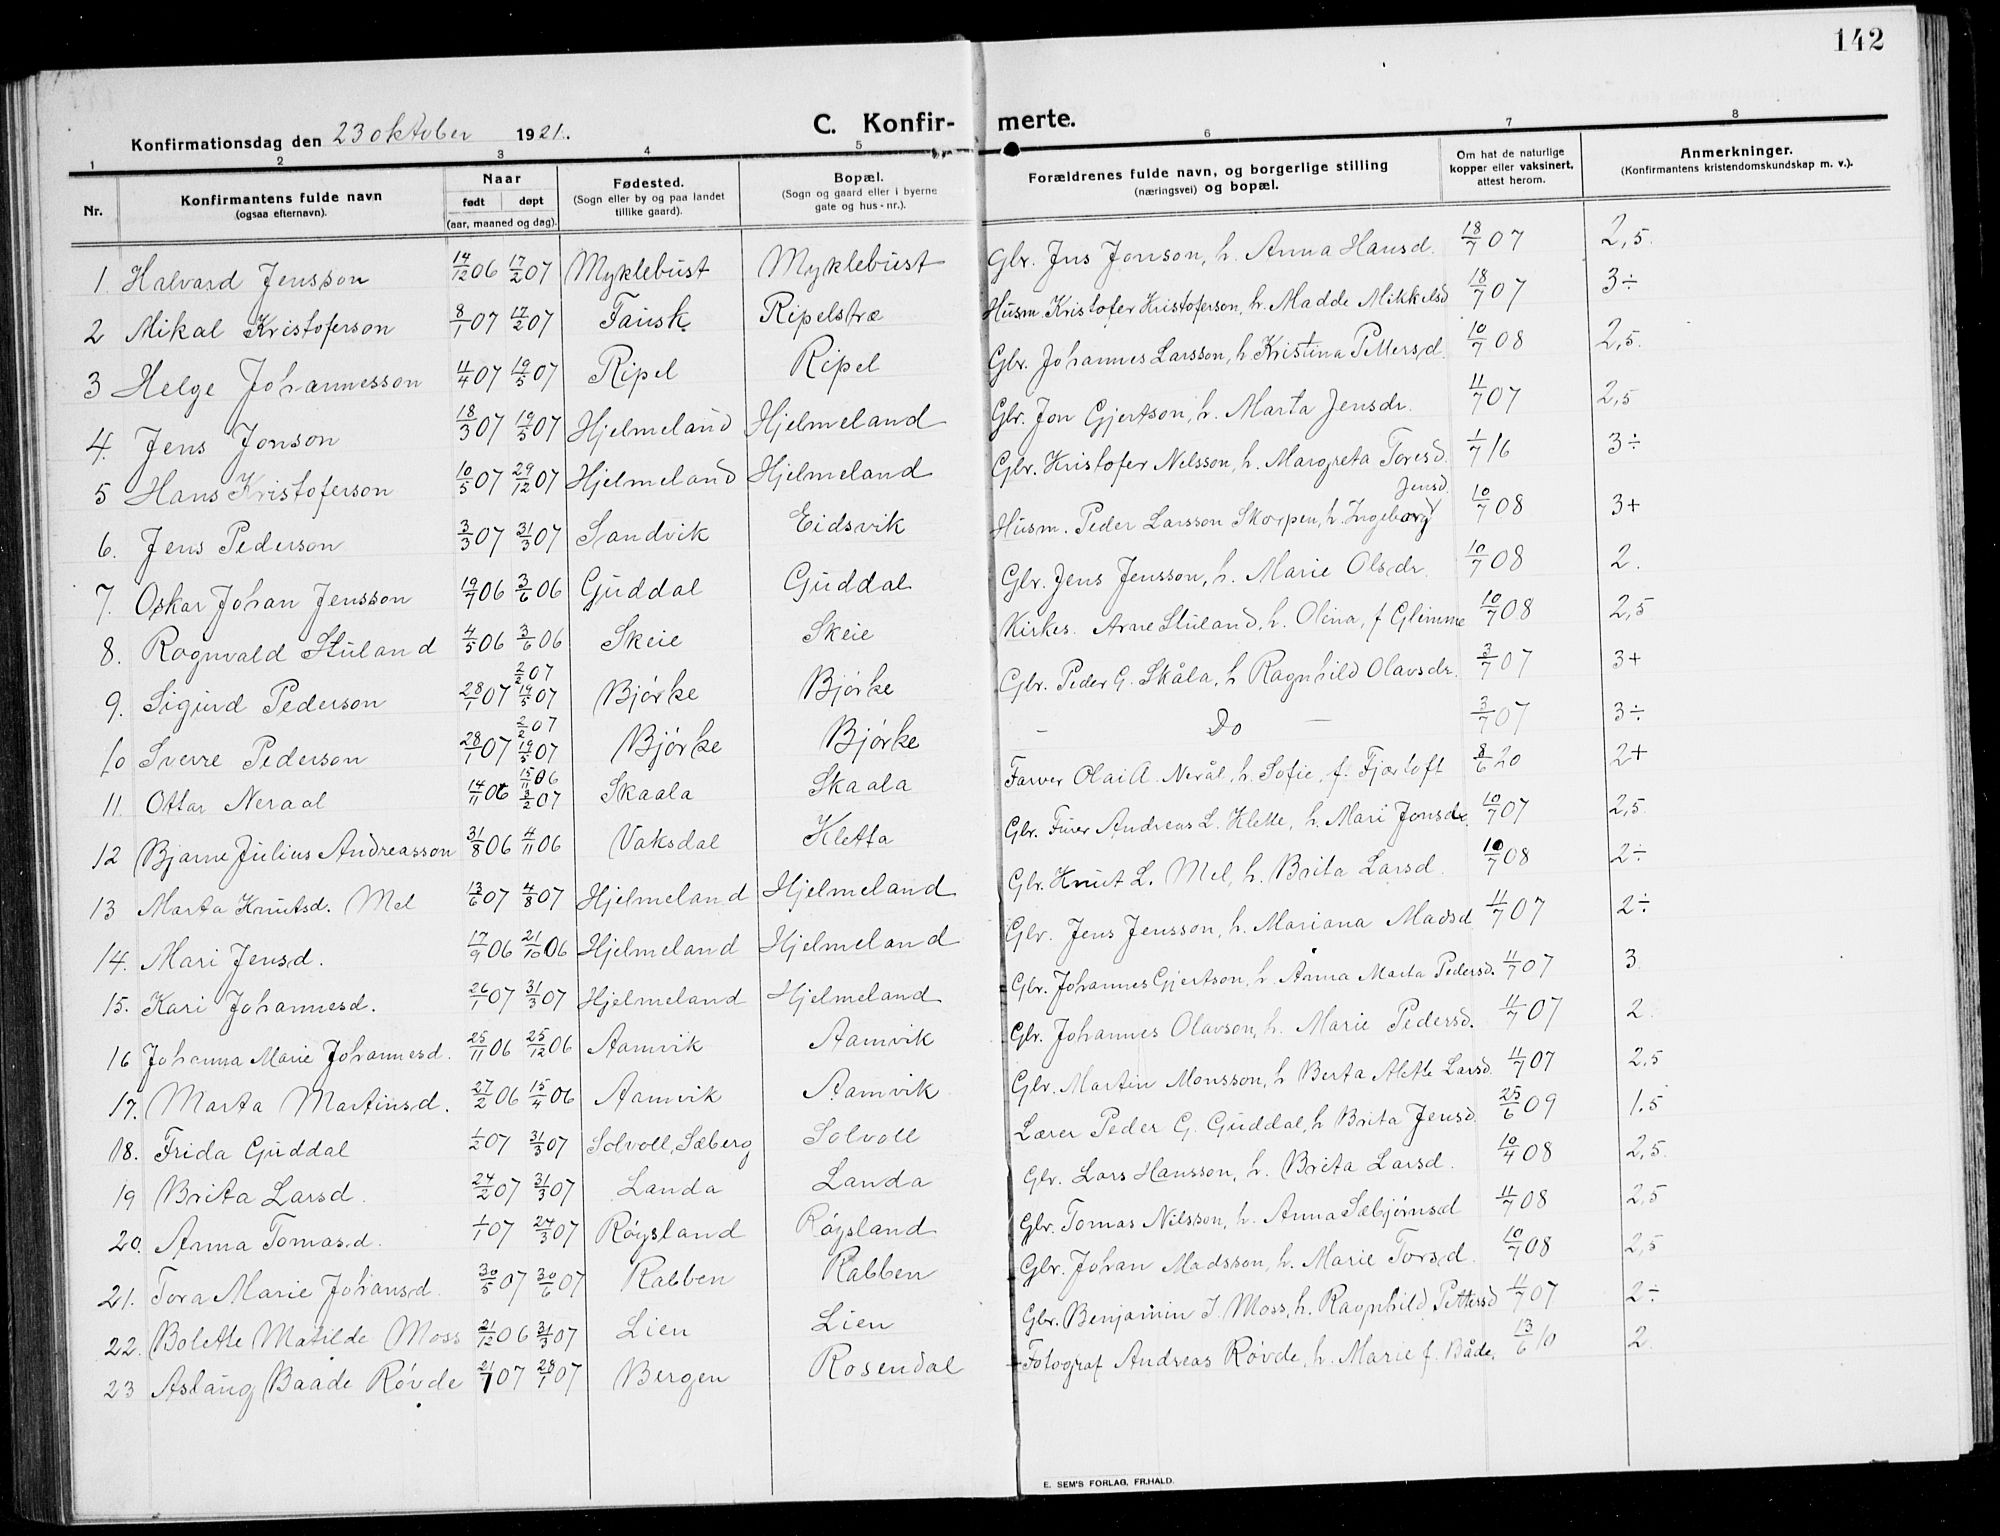 142
Konfirmationsdag den 23 oktober 1921.
C. Konfir- merte.
1 2 3 4 5 6 7 8
Nr. Konfirmantens fulde navn (ogsaa efternavn). Naar født døpt (aar, maaned og dag). Fødested. (Sogn eller by og paa landet tillike gaard). Bopæl. (Sogn og gaard eller i byerne gate og hus-nr.). Forældrenes fulde navn, og borgerlige stilling (næringsvei) og bopæl. Om hat de naturlige kopper eller vaksinert, attest herom. Anmerkninger. (Konfirmantens kristendomskundskap m. v.).
1. Halvard Jensson 14/12 06 17/2 07 Myklebust Myklebust Gbr. Jns Jonson, h. Anna Hansd. 18/7 07 2,5.
2 Mikal Kristoferson 8/1 07 17/2 07 Fausk Ripelstræ Husm. Kristofer Kristoferson, h. Madde Mikkelsd 18/7 07 3÷
3 Helge Johannesson 11/4 07 19/5 07 Ripel Ripel Gbr. Johannes Larsson, h Kristina Pettersd. 10/7 08 2,5.
4. Jens Jonson 18/3 07 19/5 07 Hjelmeland Hjelmeland Gbr. Jon Gjertson, h. Marta Jensdr. 11/7 07 2,5
5 Hans Kristoferson 10/5 07 29/12 07 Hjelmeland Hjelmeland Gbr. Kristofer Nelsson, h. Margreta Toresd. 1/7 16 3÷
6. Jens Pederson 3/3 07 31/3 07 Sandvik Eidsvik Husm. Peder Larsson Skorpen, h. Ingeborg Jensd. 10/7 08 3+
7. Oskar Johan Jensson 19/7 06 3/6 06 Guddal Guddal Gbr. Jens Jensson, h. Marie Olsdr. 10/7 08 2.
8. Rognvald Stuland 4/5 06 3/6 06 Skeie Skeie Kirkes. Arne Stuland, h. Olina, f Glimme 10/7 08 2,5
9. Sigurd Pederson 28/1 07 2/2 07 19/5 07 Bjørke Bjørke Gbr. Peder G. Skåla, h Ragnhild Olavsdr. 3/7 07 3+
10 Sverre Pederson 28/1 07 2/2 07 19/5 07 Bjørke Bjørke – Do – 3/7 07 3÷
11. Ottar Neraal 14/11 06 15/11 06 3/2 07 Skaala Skaala Farver Olai A. Nerål, h. Sofie, f. Fjørtoft 8/6 20 2+
12 Bjarne Julius Andreasson 31/8 06 4/11 06 Vaksdal Kletta Gbr. Furer Andreas L. Klette, h. Mari Jonsdr. 10/7 07 2,5.
13 Marta Knutsd. Mel 13/6 07 4/8 07 Hjelmeland Hjelmeland Gbr. Knut L. Mel, h. Brita Larsd. 10/7 08 2÷
14. Mari Jensd. 17/9 06 21/10 06 Hjelmeland Hjelmeland Gbr. Jens Jensson, h. Mariana Madsd 11/7 07 2÷
15. Kari Johannesd. 26/1 07 31/3 07 Hjelmeland Hjelmeland Gbr. Johannes Gjertson, h. Anna Marta Pedersd. 11/7 07 3.
16 Johanna Marie Johannesd. 25/11 06 25/12 06 Aamvik Aamvik Gbr. Johannes Olavson, h. Marie Pedersd. 11/7 07 2.
17. Marta Martinsd. 27/2 06 15/4 06 Aamvik Aamvik Gbr. Martin Monsson, h Berta Alette Larsd. 11/7 07 2,5
18. Frida Guddal 1/2 07 31/3 07 Solvoll, Sæberg Solvoll Lærer Peder G. Guddal, h Brita Jensd. 25/6 09 1.5
19 Brita Larsd. 24/2 07 31/3 07 Landa Landa Gbr. Lars Hansson, h. Brita Larsd. 10/4 08 2,5.
20. Anna Tomasd. 1/1 07 24/3 07 Røysland Røysland Gbr. Tomas Nilsson, h. Anna Sæbjørnsd 11/7 08 2,5
21. Tora Marie Johansd. 30/5 07 30/6 07 Rabben Rabben Gbr. Johan Madsson, h. Marie Torsd. 10/7 08 2,5
22. Bolette Matilde Moss 21/12 06 31/3 07 Lien Lien Gbr. Benjamin J. Moss, h. Ragnhild Pettersd 11/7 07 2÷
23 Aslaug Baade Røvde 21/1 07 28/1 07 Bergen Rosendal Fotograf Andreas Røvde, h. Marie f. Både. 13/6 10 2.
E. SEM'S FORLAG, FR.HALD.